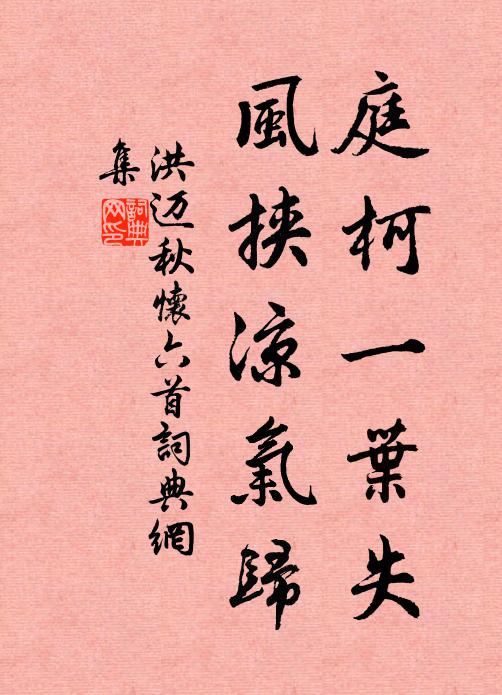 庭柯一葉失
風挾涼氣歸
洪迈秋懷六首詞典網
集
詞典网印